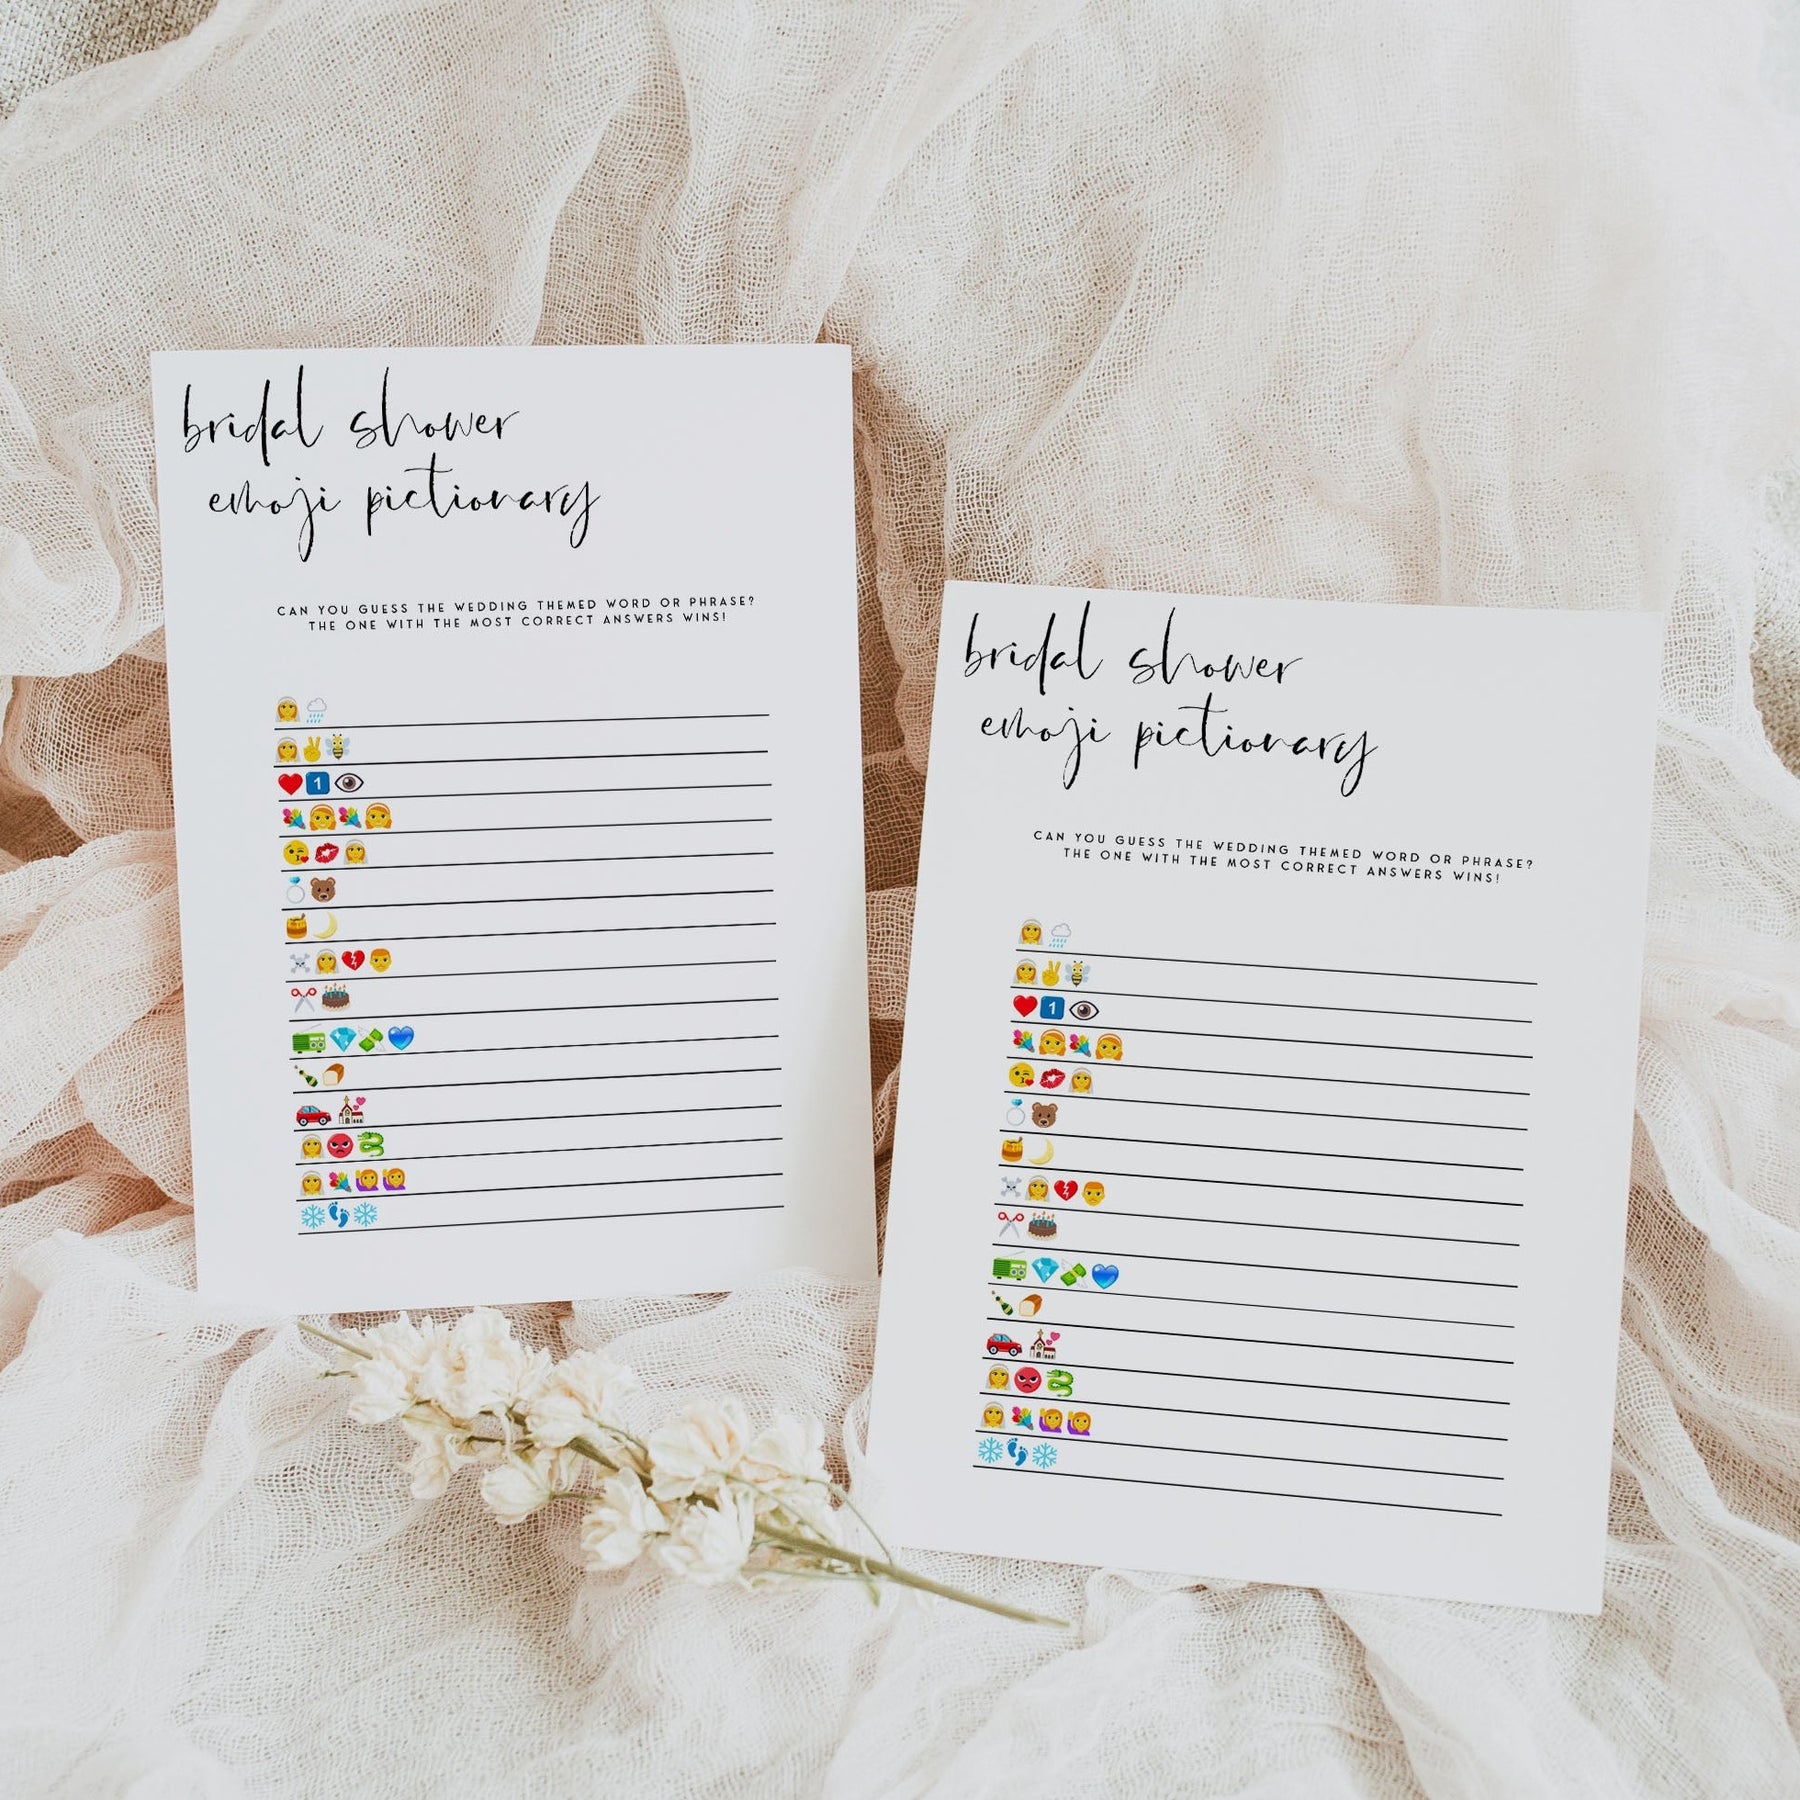 bridal shower
emoji pictionary
CAN YOU GUESS THE WEDDING THEMED WORD OR PHRASE?
THE ONE WITH THE MOST CORRECT ANSWERS WINS!
1
bridal shower
emoji pictionary
CAN YOU GUESS THE WEDDING THEMED WORD OR PHRASE?
THE ONE WITH THE MOST CORRECT ANSWERS WINS!
1